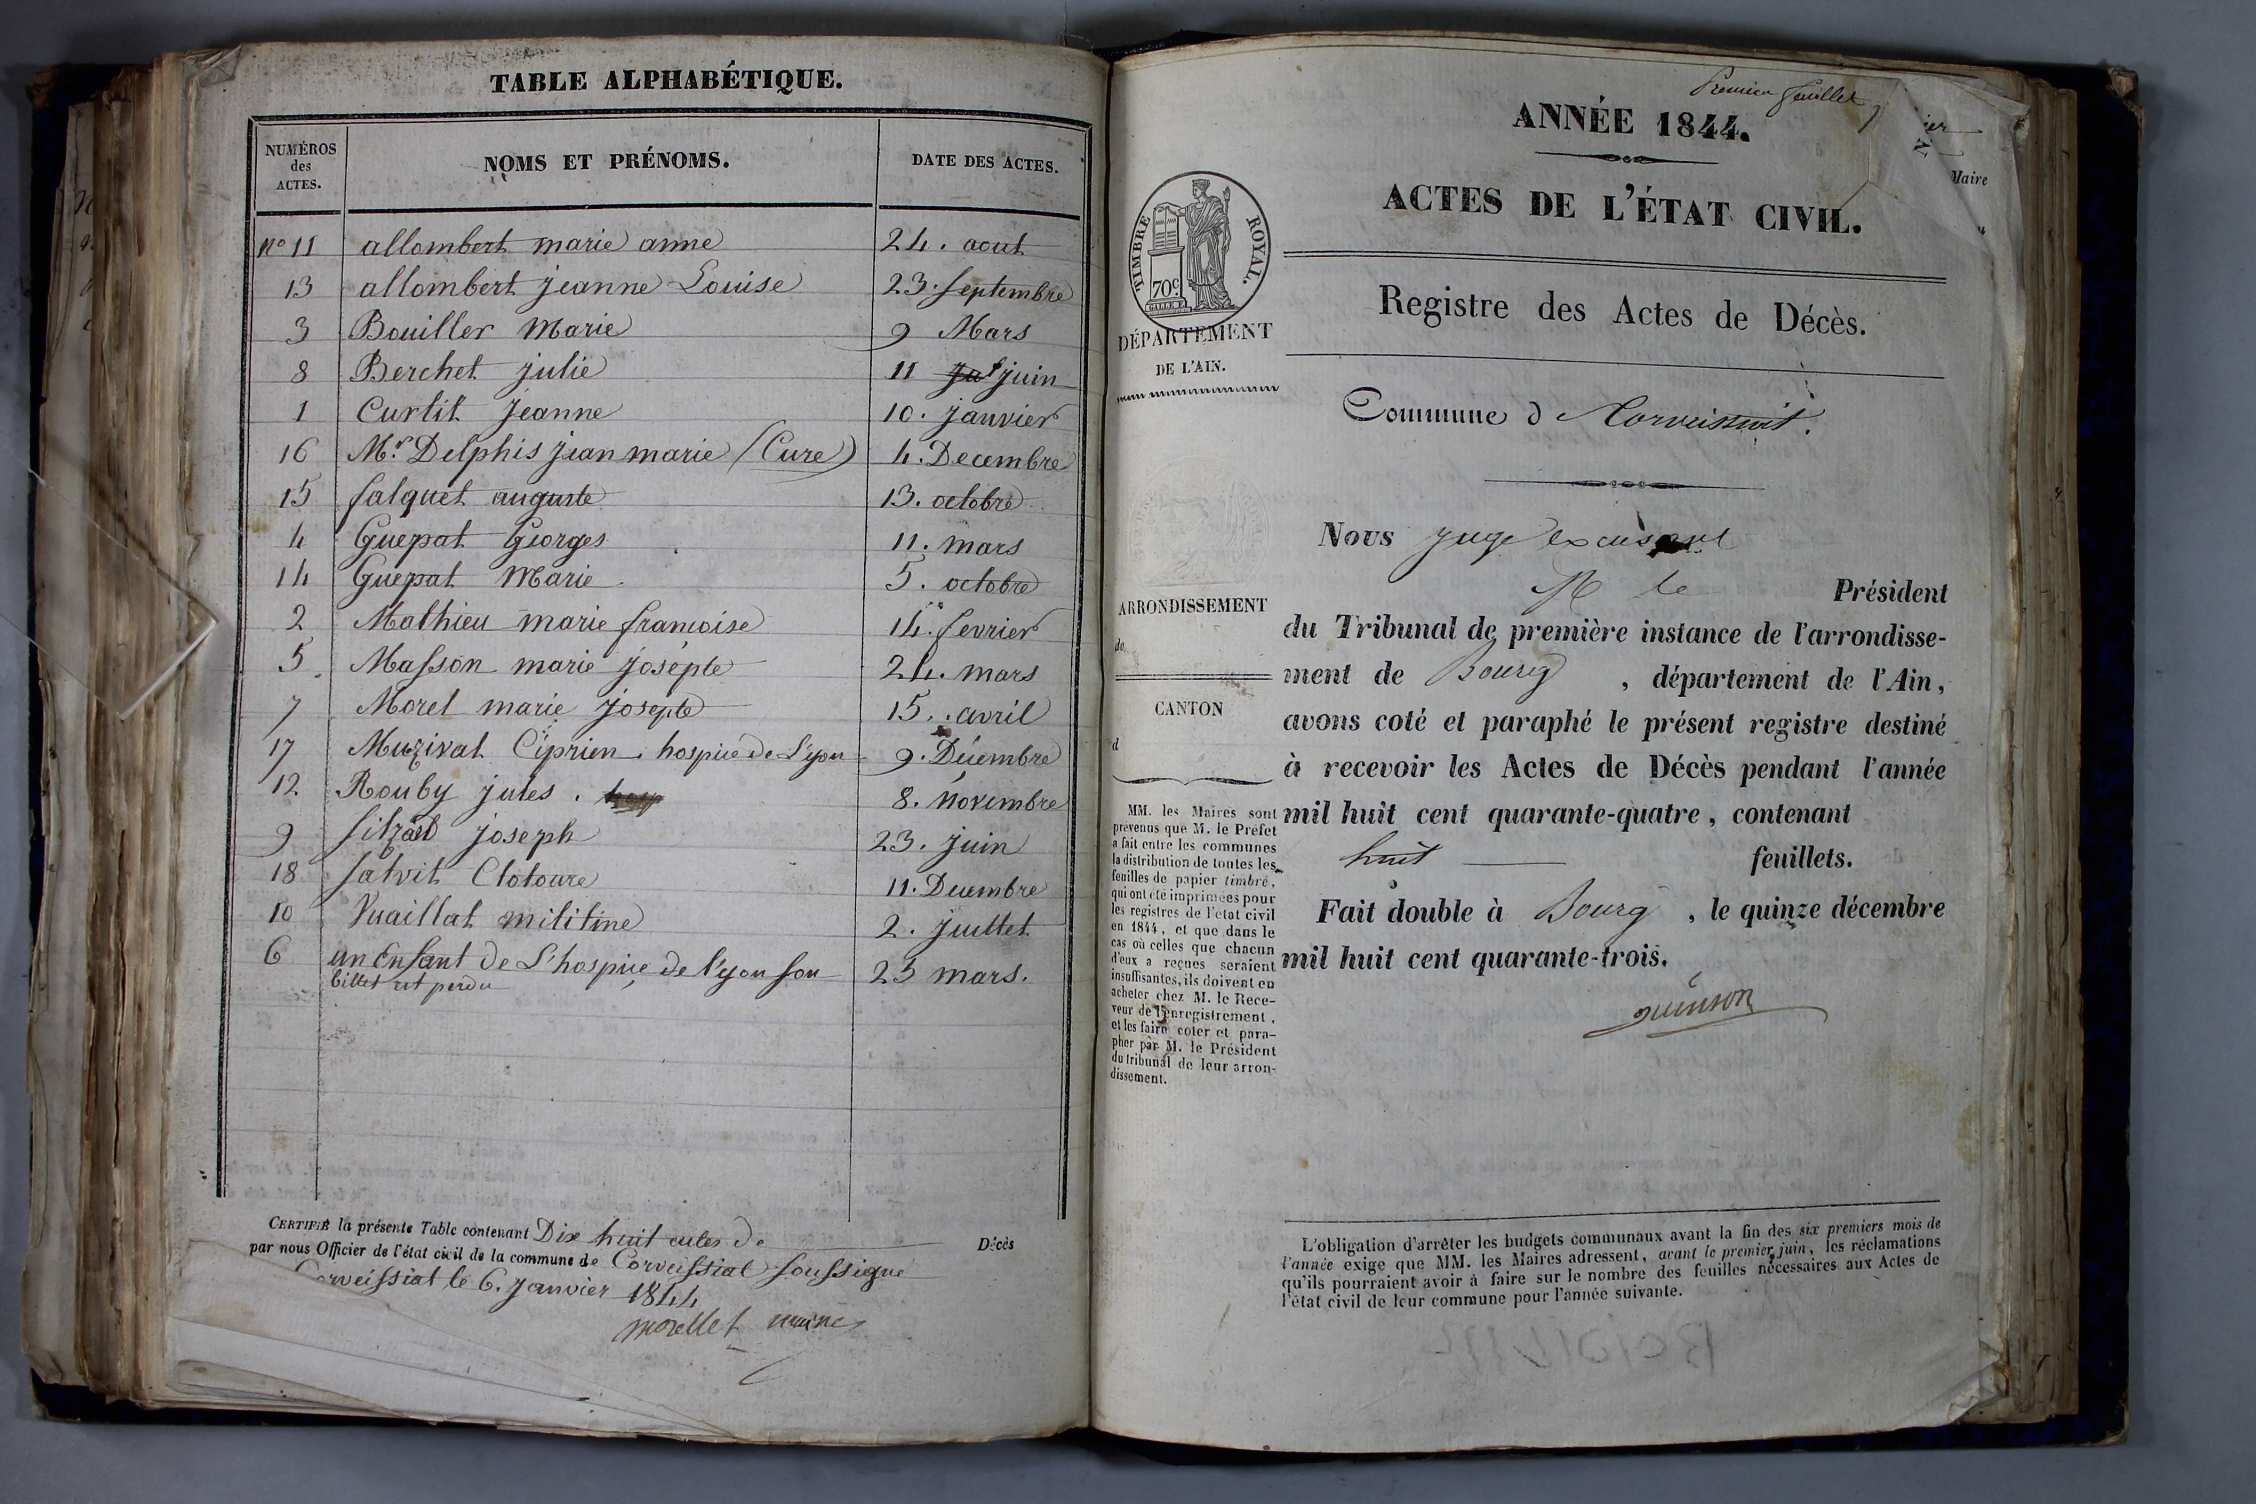 TABLE ALPHABÉTIQUE.
NUMÉROS des ACTES. NOMS ET PRÉNOMS. DATE DES ACTES.
No 11 allombert marie anne 24. aout
13 allombert jeanne Louise 23. septembre
3 Bouiller Marie 9 Mars
8 Berchet julie 11 juin
1 Curtit Jeanne 10. janvier
16 Mr. Delphis jean marie (Cure) 4. Decembre
15 falquet auguste 13. octobre
4 Guepat Georges 11. mars
14 Guepat Marie 5. octobre
2 Mathieu marie francoise 14. fevrier
5 Masson marie josepte 24. mars
7 Morel marie josepte 15. avril
17 Muzivat Ciprien. hospice de Lyon 9. Décembre
12 Rouby jules. 8. novembre
9 joseph 23. juin
18 Salvit Clotoure 11. Decembre
10 Vuaillat militine 2. juillet
6 un Enfant de L'hospice de lyon son 25 mars.
billet est perdu
CERTIFIÉ la présente Table contenant Dix huit actes de Décès
par nous Officier de l'état civil de la commune de Corveissiat soussigne
Corveissiat le 6. janvier 1844
morellet maire
Premier feuillet
ANNÉE 1844.
ACTES DE L'ÉTAT CIVIL.
TIMBRE ROYAL.
70c
DÉPARTEMENT
DE L'AIN.
Registre des Actes de Décès.
Commune d
Nous juge
M le Président
du Tribunal de première instance de l'arrondisse-
ment de Bourg , département de l'Ain,
avons coté et paraphé le présent registre destiné
à recevoir les Actes de Décès pendant l'année
mil huit cent quarante-quatre, contenant
huit feuillets.
Fait double à Bourg , le quinze décembre
mil huit cent quarante-trois.
quinson
ARRONDISSEMENT
de
CANTON
d
MM. les Maires sont
prévenus que M. le Préfet
a fait entre les communes
la distribution de toutes les
feuilles de papier timbré,
qui ont été imprimées pour
les registres de l'état civil
en 1844, et que dans le
cas où celles que chacun
d'eux a reçues seraient
insuffisantes, ils doivent en
acheter chez M. le Rece-
veur de l'enregistrement,
et les faire coter et para-
pher par M. le Président
du tribunal de leur arron-
dissement.
L'obligation d'arrêter les budgets communaux avant la fin des six premiers mois de
l'année exige que MM. les Maires adressent, avant le premier juin, les réclamations
qu'ils pourraient avoir à faire sur le nombre des feuilles nécessaires aux Actes de
l'état civil de leur commune pour l'année suivante.
Maire